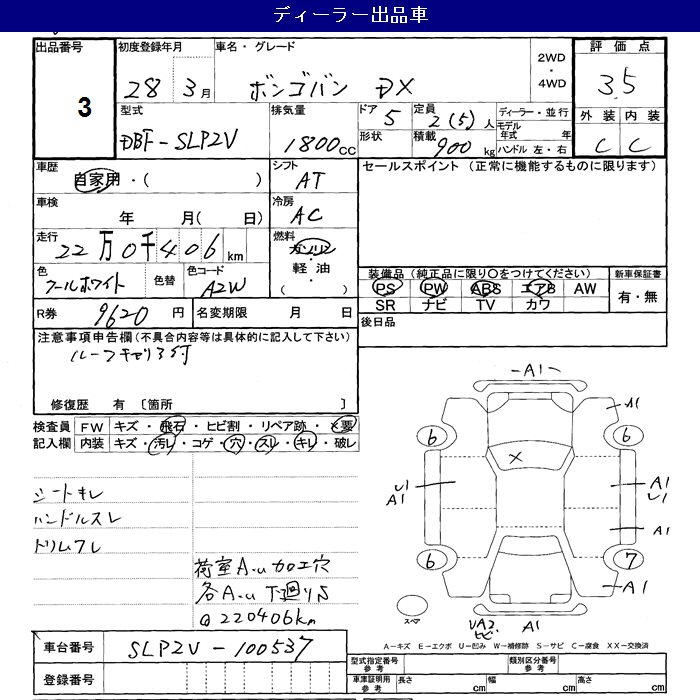 ディーラー出品車
出品番号 3
初度登録年月 28 3月
車名・グレード ボンゴバン DX
2WD・4WD
評価点 3.5
型式 DBF-SLP2V
排気量 1800cc
ドア 5
形状
定員 2(5)人
積載 900kg
ディーラー・並行
モデル年式 年
ハンドル 左・右
外装 C
内装 C
車歴 自家用・( )
シフト AT
セールスポイント (正常に機能するものに限ります)
車検 年 月( 日)
冷房 AC
走行 22万0千406km
燃料 ガソリン・軽油・( )
色 クールホワイト
色替
色コード A2W
装備品(純正品に限り○をつけてください)
PS PW ABS エアB AW
SR ナビ TV カワ
新車保証書 有・無
R券 9620円
名変期限 月 日
後日品
注意事項申告欄(不具合内容等は具体的に記入して下さい)
ルーフキャリア付
修復歴 有 [箇所 ]
検査員記入欄
FW キズ・飛石・ヒビ割・リペア跡・×要
内装 キズ・汚レ・コゲ・穴・スレ・キレ・破レ
シートキレ
ハンドルスレ
荷室A.u加工穴
各A.u下廻りS
@220406km
車台番号 SLP2V-100537
登録番号
A1
A1
6
6
×
U1
A1
A1
U1
A1
6
7
A1
スペア
UA2
ヒビ
A1
A-キズ E-エクボ U-凹み W-補修跡 S-サビ C-腐食 XX-交換済
型式指定番号 参考
類別区分番号 参考
車庫証明用 参考 長さ cm 幅 cm 高さ cm